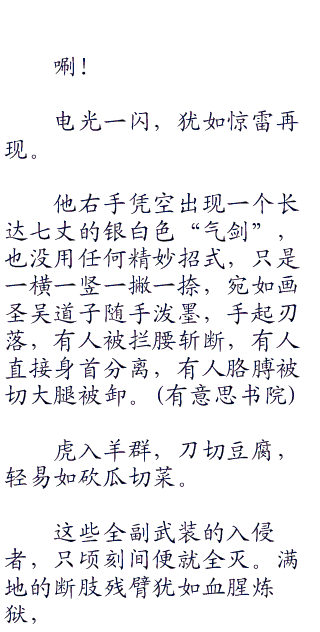 唰！
电光一闪，犹如惊雷再
现。
他右手凭空出现一个长
达七丈的银白色“气剑”，
也没用任何精妙招式，只是
一横一竖一撇一捺，宛如画
圣吴道子随手泼墨，手起刃
落，有人被拦腰斩断，有人
直接身首分离，有人胳膊被
切大腿被卸。(有意思书院)
虎入羊群，刀切豆腐，
轻易如砍瓜切菜。
这些全副武装的入侵
者，只顷刻间便就全灭。满
地的断肢残臂犹如血腥炼
狱，